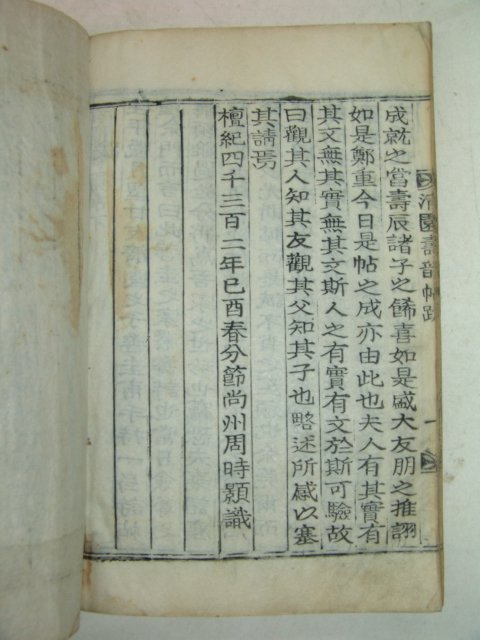 淸園壽韻帖跋 一
成就之當壽辰諸子之餙喜如是盛大友朋之推詡
如是鄭重今日是帖之成亦由此也夫人有其實有
其文無其實無其文斯人之有實有文於斯可驗故
曰觀其人知其友觀其父知其子也略述所感以塞
其請焉
檀紀四千三百二年己酉春分節尙州周時顯識